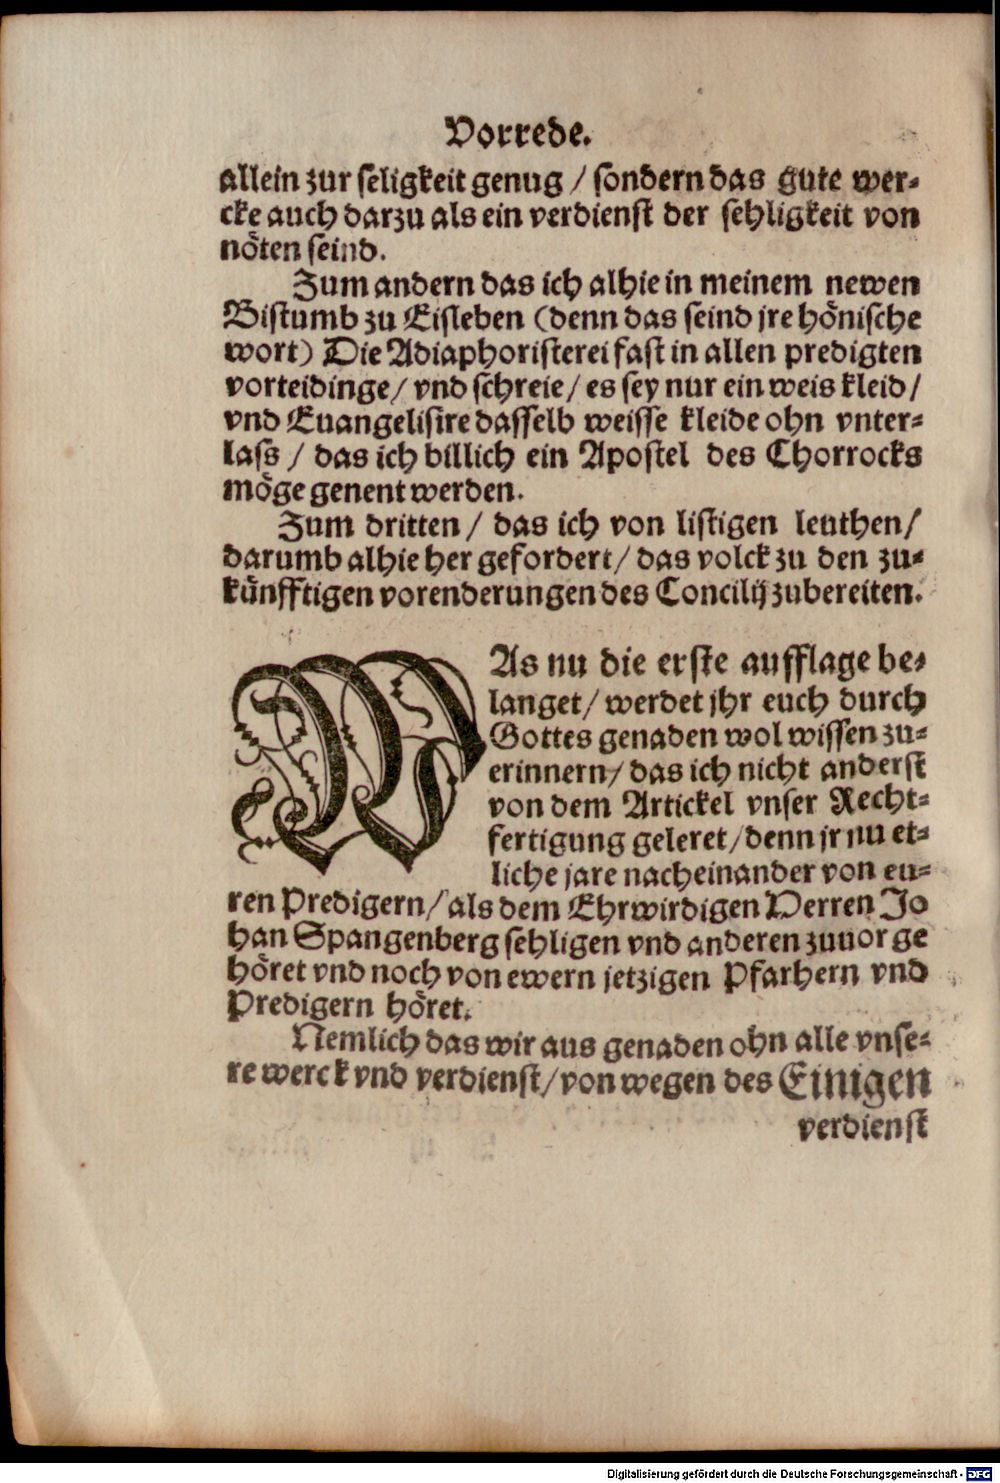 Vorrede.
allein zur seligkeit genug / sondern das gute wer-
cke auch darzu als ein verdienst der sehligkeit von
nöten seind.
Zum andern das ich alhie in meinem newen
Bistumb zu Eisleben (denn das seind jre hönische
wort) Die Adiaphoristerei fast in allen predigten
vorteidinge / vnd schreie / es sey nur ein weis kleid /
vnd Euangelisire dasselb weisse kleide ohn vnter-
lass / das ich billich ein Apostel des Chorrocks
möge genent werden.
Zum dritten / das ich von listigen leuthen /
darumb alhie her gefordert / das volck zu den zu-
künfftigen vorenderungen des Concilij zubereiten.
WAs nu die erste aufflage be-
langet / werdet jhr euch durch
Gottes genaden wol wissen zu-
erinnern / das ich nicht anderst
von dem Artickel vnser Recht-
fertigung geleret / denn jr nu et-
liche jare nacheinander von eu-
ren Predigern / als dem Ehrwirdigen Herren Jo
han Spangenberg sehligen vnd anderen zuuor ge
höret vnd noch von ewern jetzigen Pfarhern vnd
Predigern höret.
Nemlich das wir aus genaden ohn alle vnse-
re werck vnd verdienst / von wegen des Einigen
verdienst
Digitalisierung gefördert durch die Deutsche Forschungsgemeinschaft - DFG